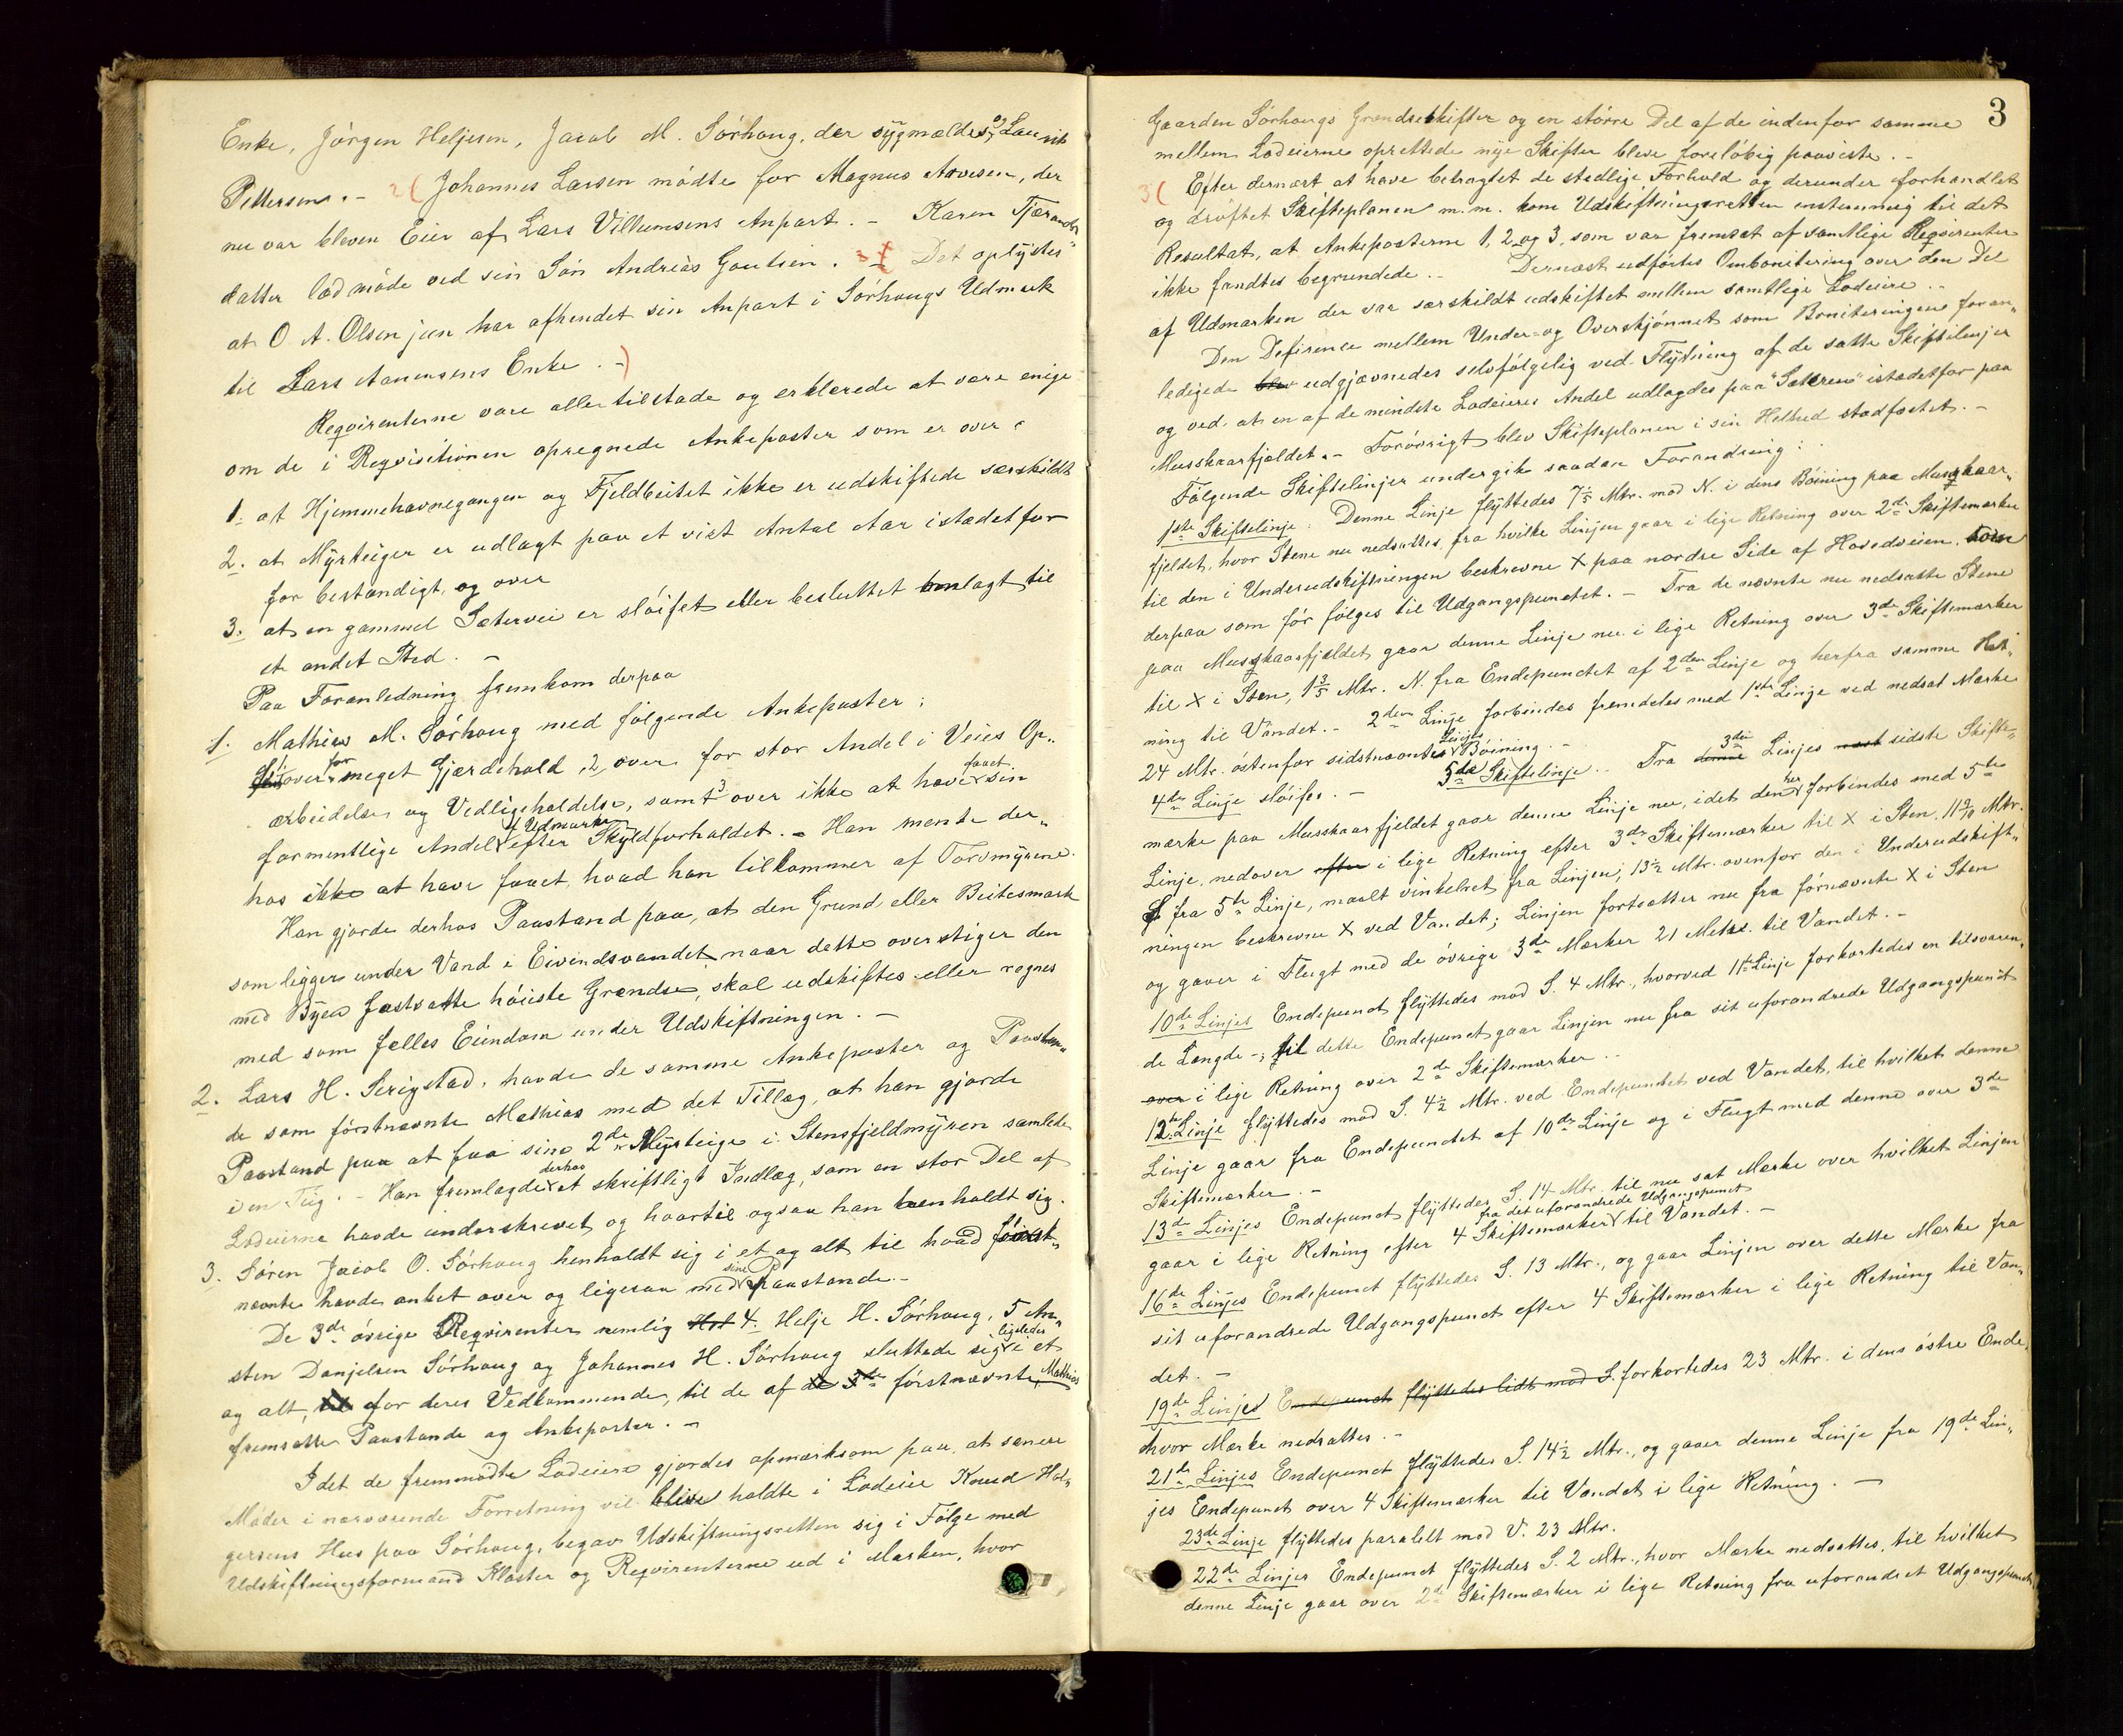 Enke, Jörgen Heljesen, Jacob M. Sörhoug, der sygmeldes, og Laurits
Pettersen. - 2( Johannes Larsen mödte for Magnus Aavesen, der
nu var bleven Eier af Lars Villumsens Anpart. - Karen Tjærands„
datter lod möde ved sin Sön Andreas Gautsen. 3( Det oplystes
at O A. Olsen jun har afhendet sin Anpart i Sörhougs Udmark
til Lars Aanensens Enke. -)
Reqvirenterne vare alle tilstade og erklærede at være enige
om de i Reqvisitionen opregnede Ankeposter som er over:
1. at Hjemmehavnegangen og Fjeldbeitet ikke er udskiftede særskildt
2. at Myrteiger er udlagt paa et vist Antal Aar istædetfor
for bestandigt, og over
3. at en gammel Sætervei er slöifet eller besluttet omlagt til
et andet Sted. -
Paa Foranledning fremkom derpaa
1. Mathias M. Sörhoug med fölgende Ankeposter:
1, over for meget Gjærdehold, 2, over for stor Andel i Veies Op„
arbeidelse og Vedligeholdelse, samt 3 over ikke at have faaet sin
formentlige Andel af Udmarken efter Skyldforholdet. - Han mente der„
hos ikke at have faaet, hvad han tilkommer af Torvmyrene.
Han gjorde derhos Paastand paa, at den Grund eller Beitesmark
som ligger under Vand i Eivindsvandet naar dette overstiger den
med Byen fastsatte höieste Grændse, skal udskiftes eller regnes
med som fælles Eiendom under Udskiftningen. -
2. Lars H. Serigstad, havde de samme Ankeposter og Paastan„
de som förstnævnte Mathias med det Tillæg, at han gjorde
Paastand paa at faa sine 2de Myrteige i Stensfjeldmyren samlede
i en Teig. - Han fremlagde derhos et skriftligt Indlæg, som en stor Del af
Lodeierne havde underskrevet og hvortil ogsaa han henholdt sig.
3. Sören Jacob O. Sörhoug henholdt sig i et og alt til hvad först„
nævnte havde anket over og ligesaa med sine Paastande. -
De 3de övrige Reqvirenter nemlig 4. Helje H. Sörhoug, 5 An„
sten Danjelsen Sörhoug og Johannes H. Sörhoug sluttede sig ligeledes i et
og alt, for deres Vedkommende, til de af förstnævnte Mathias
fremsatte Paastande og Ankeposter. -
Idet de fremmödte Lodeiere gjordes opmærksom paa, at senere
Möder i nærværende Forretning vil blive holdte i Lodeier Knud Hol„
gersens Hus paa Sörhoug, begav Udskiftningsretten sig i Fölge med
Udskiftningsformand Kloster og Reqvirenterne ud i Marken, hvor
3
Gaarden Sörhougs Grændseskifter og en större Del af de indenfor samme
mellem Lodeierne oprettede nye Skifter bleve forelöbig paaviste. -
3( Efter dernæst at have betragtet de stedlige Forhold og derunder forhandlet
og dröftet Skifteplanen m. m. kom Udskiftningsretten enstemmig til det
Resultat, at Ankeposterne 1, 2 og 3, som var fremsat af samtlige Reqvirenter
ikke fandtes begrundede. - Dernæst udförtes Ombonitering over den Del
af Udmarken der var særskildt udskiftet mellem samtlige Lodeiere. -
Den Diference mellem Under- og Overskjönnet som Boniteringene foran„
ledigede blev udgjævnedes selvfölgelig ved Flytning af de satte Skiftelinjer
og ved at en af de mindste Lodeieres Andel udlagdes paa "Sæteren" istædetfor paa
Musskaarfjeldet. - Forövrigt blev Skifteplanen i sin Helhed stadfæstet. -
Fölgende Skiftelinjer undergik saadan Forandring:
1ste Skiftelinje: Denne Linje flyttedes 7 1/5 Mtr. mod N. i dens Böining paa Musskaar„
fjeldet, hvor Stene nu nedsattes, fra hvilke Linjen gaar i lige Retning over 2de Skiftemærker
til den i Underudskiftningen beskrevne X paa nordre Side af Hovedveien, som
derpaa som för fölges til Udgangspunctet. - Fra de nævnte nu nedsatte Stene
paa Musskaarfjeldet gaar denne Linje nu i lige Retning over 3de Skiftemærker
til X i Sten, 1 3/5 Mtr. N. fra Endepunctet af 2den Linje og herfra samme Ret„
ning til Vandet. - 2den Linje forbindes fremdeles med 1ste Linje ved nedsat Mærke
24 Mtr. östenfor sidstnævntes Linjes Böining. -
4de Linje slöifes. - 5de Skiftelinje. - Fra denne 3die Linjes næst sidste Skifte„
mærke paa Musskaarfjeldet gaar denne Linje nu, idet den her forbindes med 5te
Linje, nedover efter i lige Retning efter 3de Skiftemærker til X i Sten, 11 9/10 Mtr.
S. fra 5te Linje, maalt vinkelret fra Linjen, 13 1/2 Mtr. ovenfor den i Underudskift„
ningen beskrevne X ved Vandet; Linjen fortsætter nu fra förnævnte X i Sten
og gaaer i Flugt med de övrige 3de Mærker 21 Meter til Vandet. -
10de Linjes Endepunct flyttedes mod S. 4 Mtr., hvorved 11te Linje forkortedes en tilsvaren„
de Længde -; til dette Endepunct gaar Linjen nu fra sit uforandrede Udgangspunct
over i lige Retning over 2de Skiftemærker. -
12te Linje flyttedes mod S. 4 1/2 Mtr. ved Endepunctet ved Vandet, til hvilket denne
Linje gaar fra Endepunctet af 10de Linje og i Flugt med denne over 3de
Skiftemærker. -
13de Linjes Endepunct flyttedes S. 14 Mtr. til nu sat Mærke over hvilket Linjen
gaar i lige Retning efter 4 Skiftemærker fra det uforandrede Udgangspunct til Vandet. -
16de Linjes Endepunct flyttedes S. 13 Mtr., og gaar Linjen over dette Mærke fra
sit uforandrede Udgangspunct efter 4 Skiftemærker i lige Retning til Van„
det. -
19de Linjes Endepunct flyttedes lidt mod S. forkortedes 23 Mtr. i dens östre Ende,
hvor Mærke nedsattes. -
21de Linjes Endepunct flyttedes S. 14 1/2 Mtr., og gaaer denne Linje fra 19de Lin„
jes Endepunct over 4 Skiftemærker til Vandet i lige Retning. -
23de Linje flyttedes paralelt mod V. 23 Mtr.
22de Linjes Endepunct flyttedes S. 2 Mtr., hvor Mærke nedsattes, til hvilket
denne Linje gaar over 2de Skiftemærker i lige Retning fra uforandret Udgangspunct